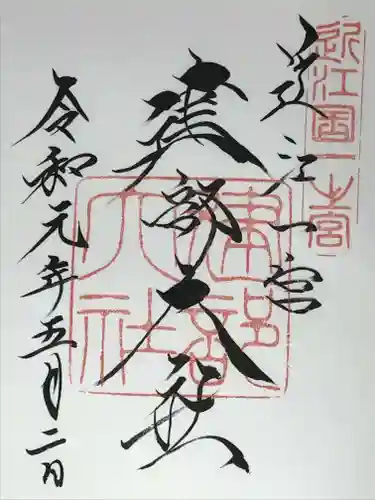 近江一宮
近江国一之宮
建部大社
建部大社
令和元年五月二日